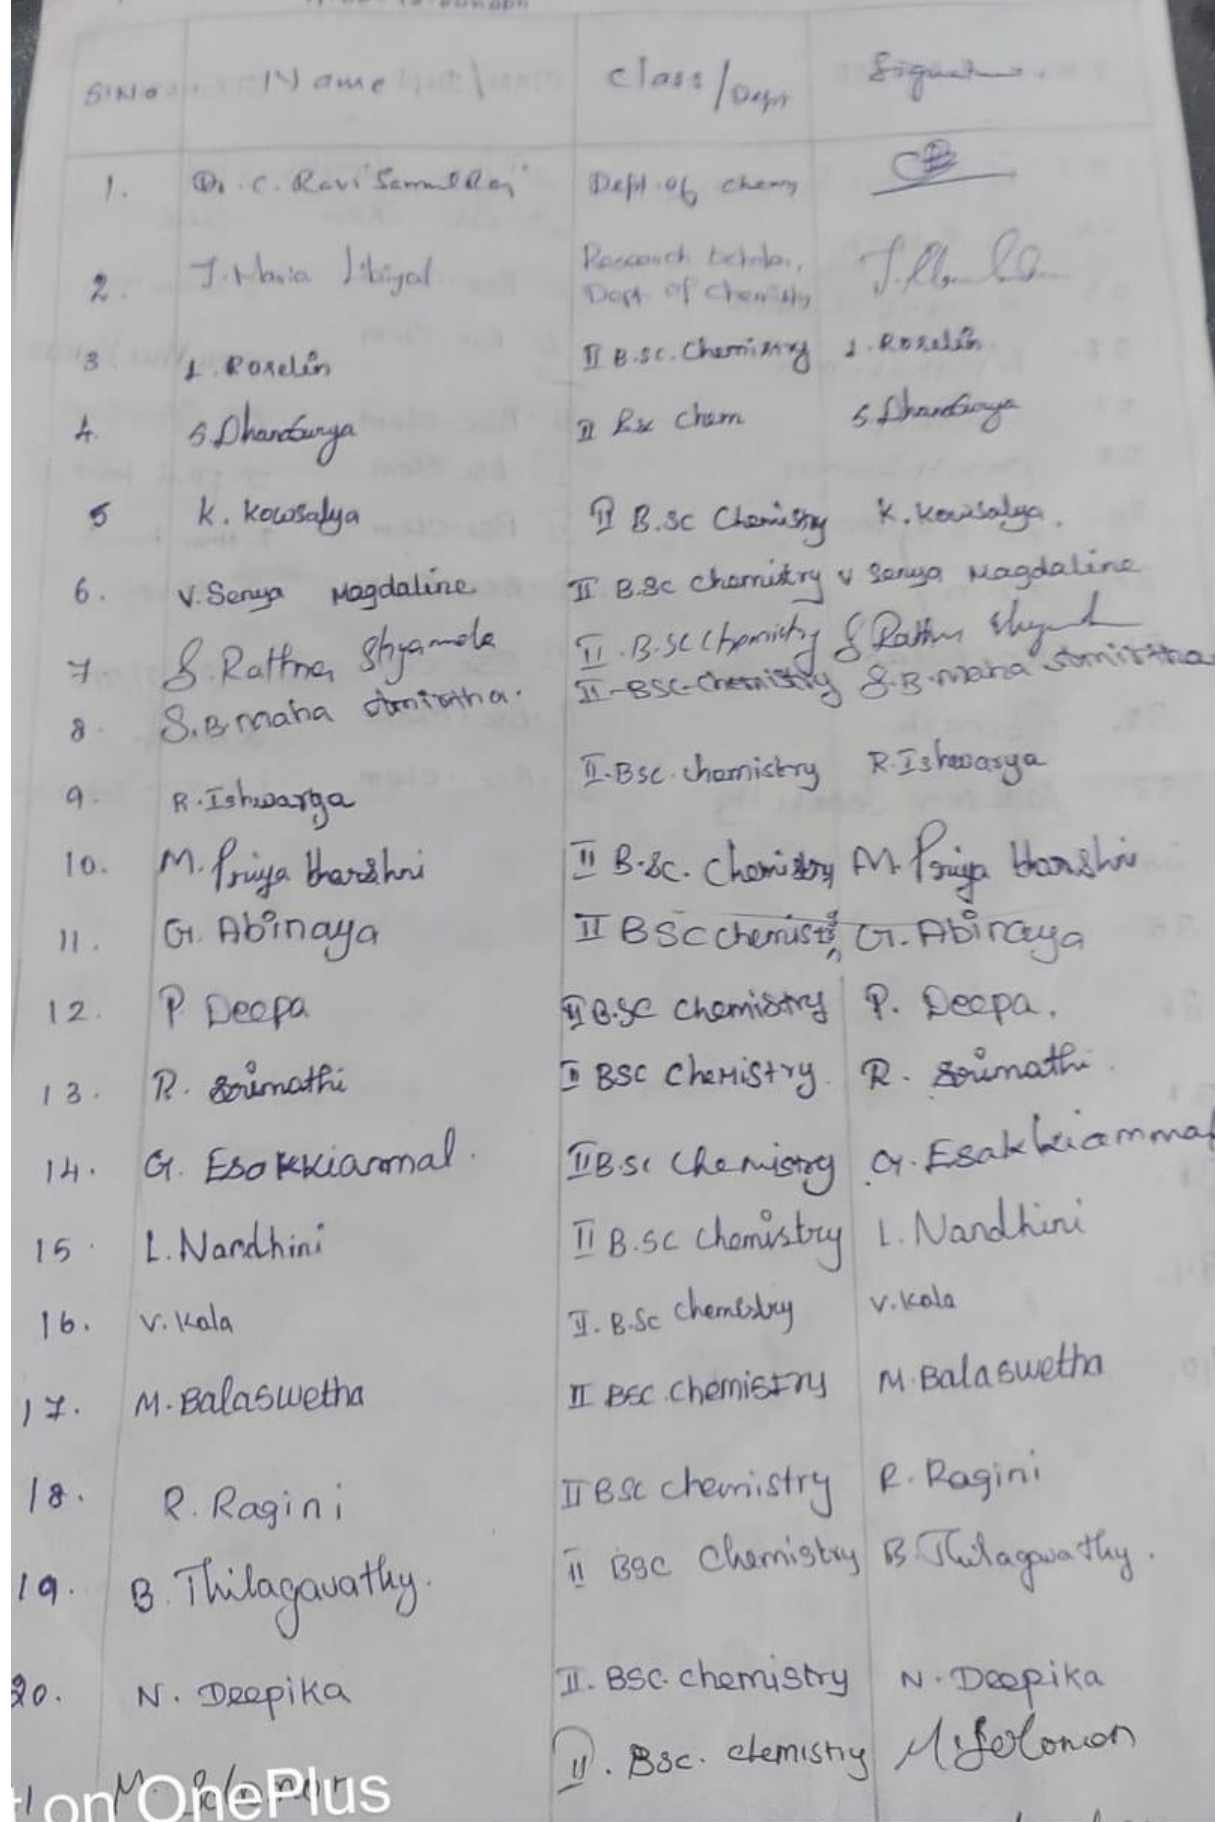 SI.No Name / Class/Dept Signature
1. Dr. C. Ravi Samuel Raj Dept. of chem
2. J. Maria Libiyal Research Scholar, Dept. of Chemistry
3 L. Roselin II B.sc. Chemistry L. Roselin
4. S. Dhansurya II Bsc Chem S. Dhansurya
5 K. Kowsalya II B.sc Chemistry K. Kowsalya.
6. V. Senya Magdaline II B.Sc Chemistry V Senya Magdaline
7 S. Rathna Shyamala II. B.SC Chemistry S Rathna
8. S.B. Maha Amirtha. II-BSC-Chemistry S.B. Maha Amirtha
9. R. Ishwarya II-BSC. Chemistry R. Ishwarya
10. M. Priya Harshni II B.Sc. Chemistry M. Priya Harshni
11. G. Abinaya II BSC chemistry G. Abinaya
12. P Deepa II B.SC chemistry P. Deepa.
13. R. Srimathi II BSC Chemistry R. Srimathi.
14. G. Esakkiammal. II B.Sc Chemistry G. Esakkiammal
15. L. Nandhini II B.SC Chemistry L. Nandhini
16. V. Kala II. B.Sc Chemistry V. Kala
17. M. Balaswetha II BSC. Chemistry M. Balaswetha
18. R. Ragini II BSC chemistry R. Ragini
19. B. Thilagavathy. II BSC Chemistry B. Thilagavathy.
20. N. Deepika II. BSC. chemistry N. Deepika
M. Solomon II. Bsc. chemistry M. Solomon
on OnePlus